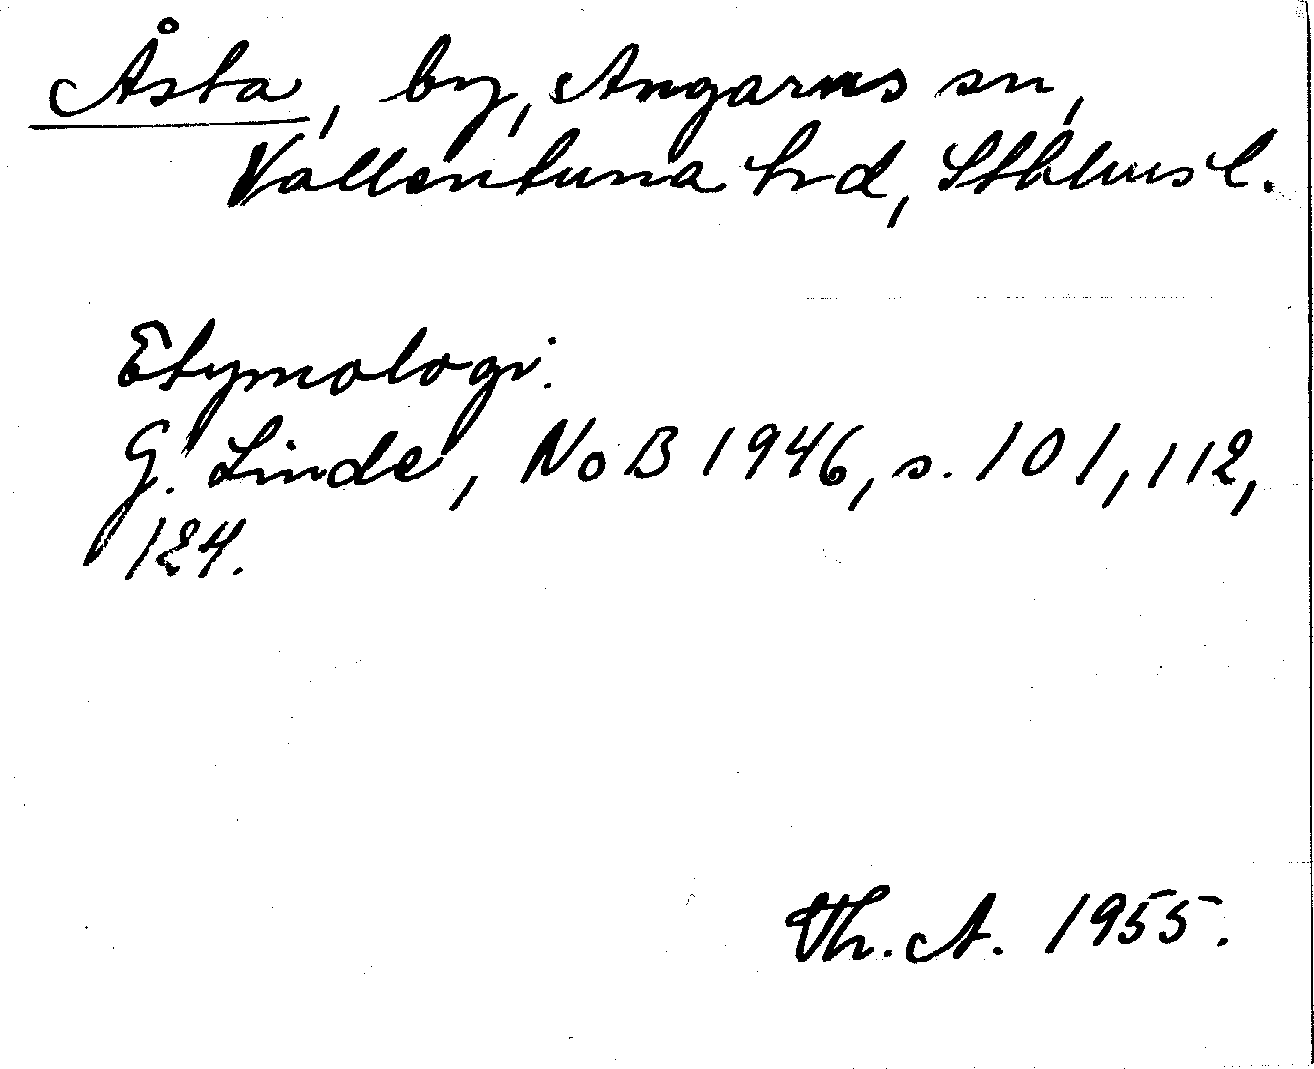 Åsta, by, Angarns sn,
Vallentuna hrd, Sthlms l.
Etymologi.
G. Linde, NoB 1946, s. 101, 112,
124.
Th. A. 1955.